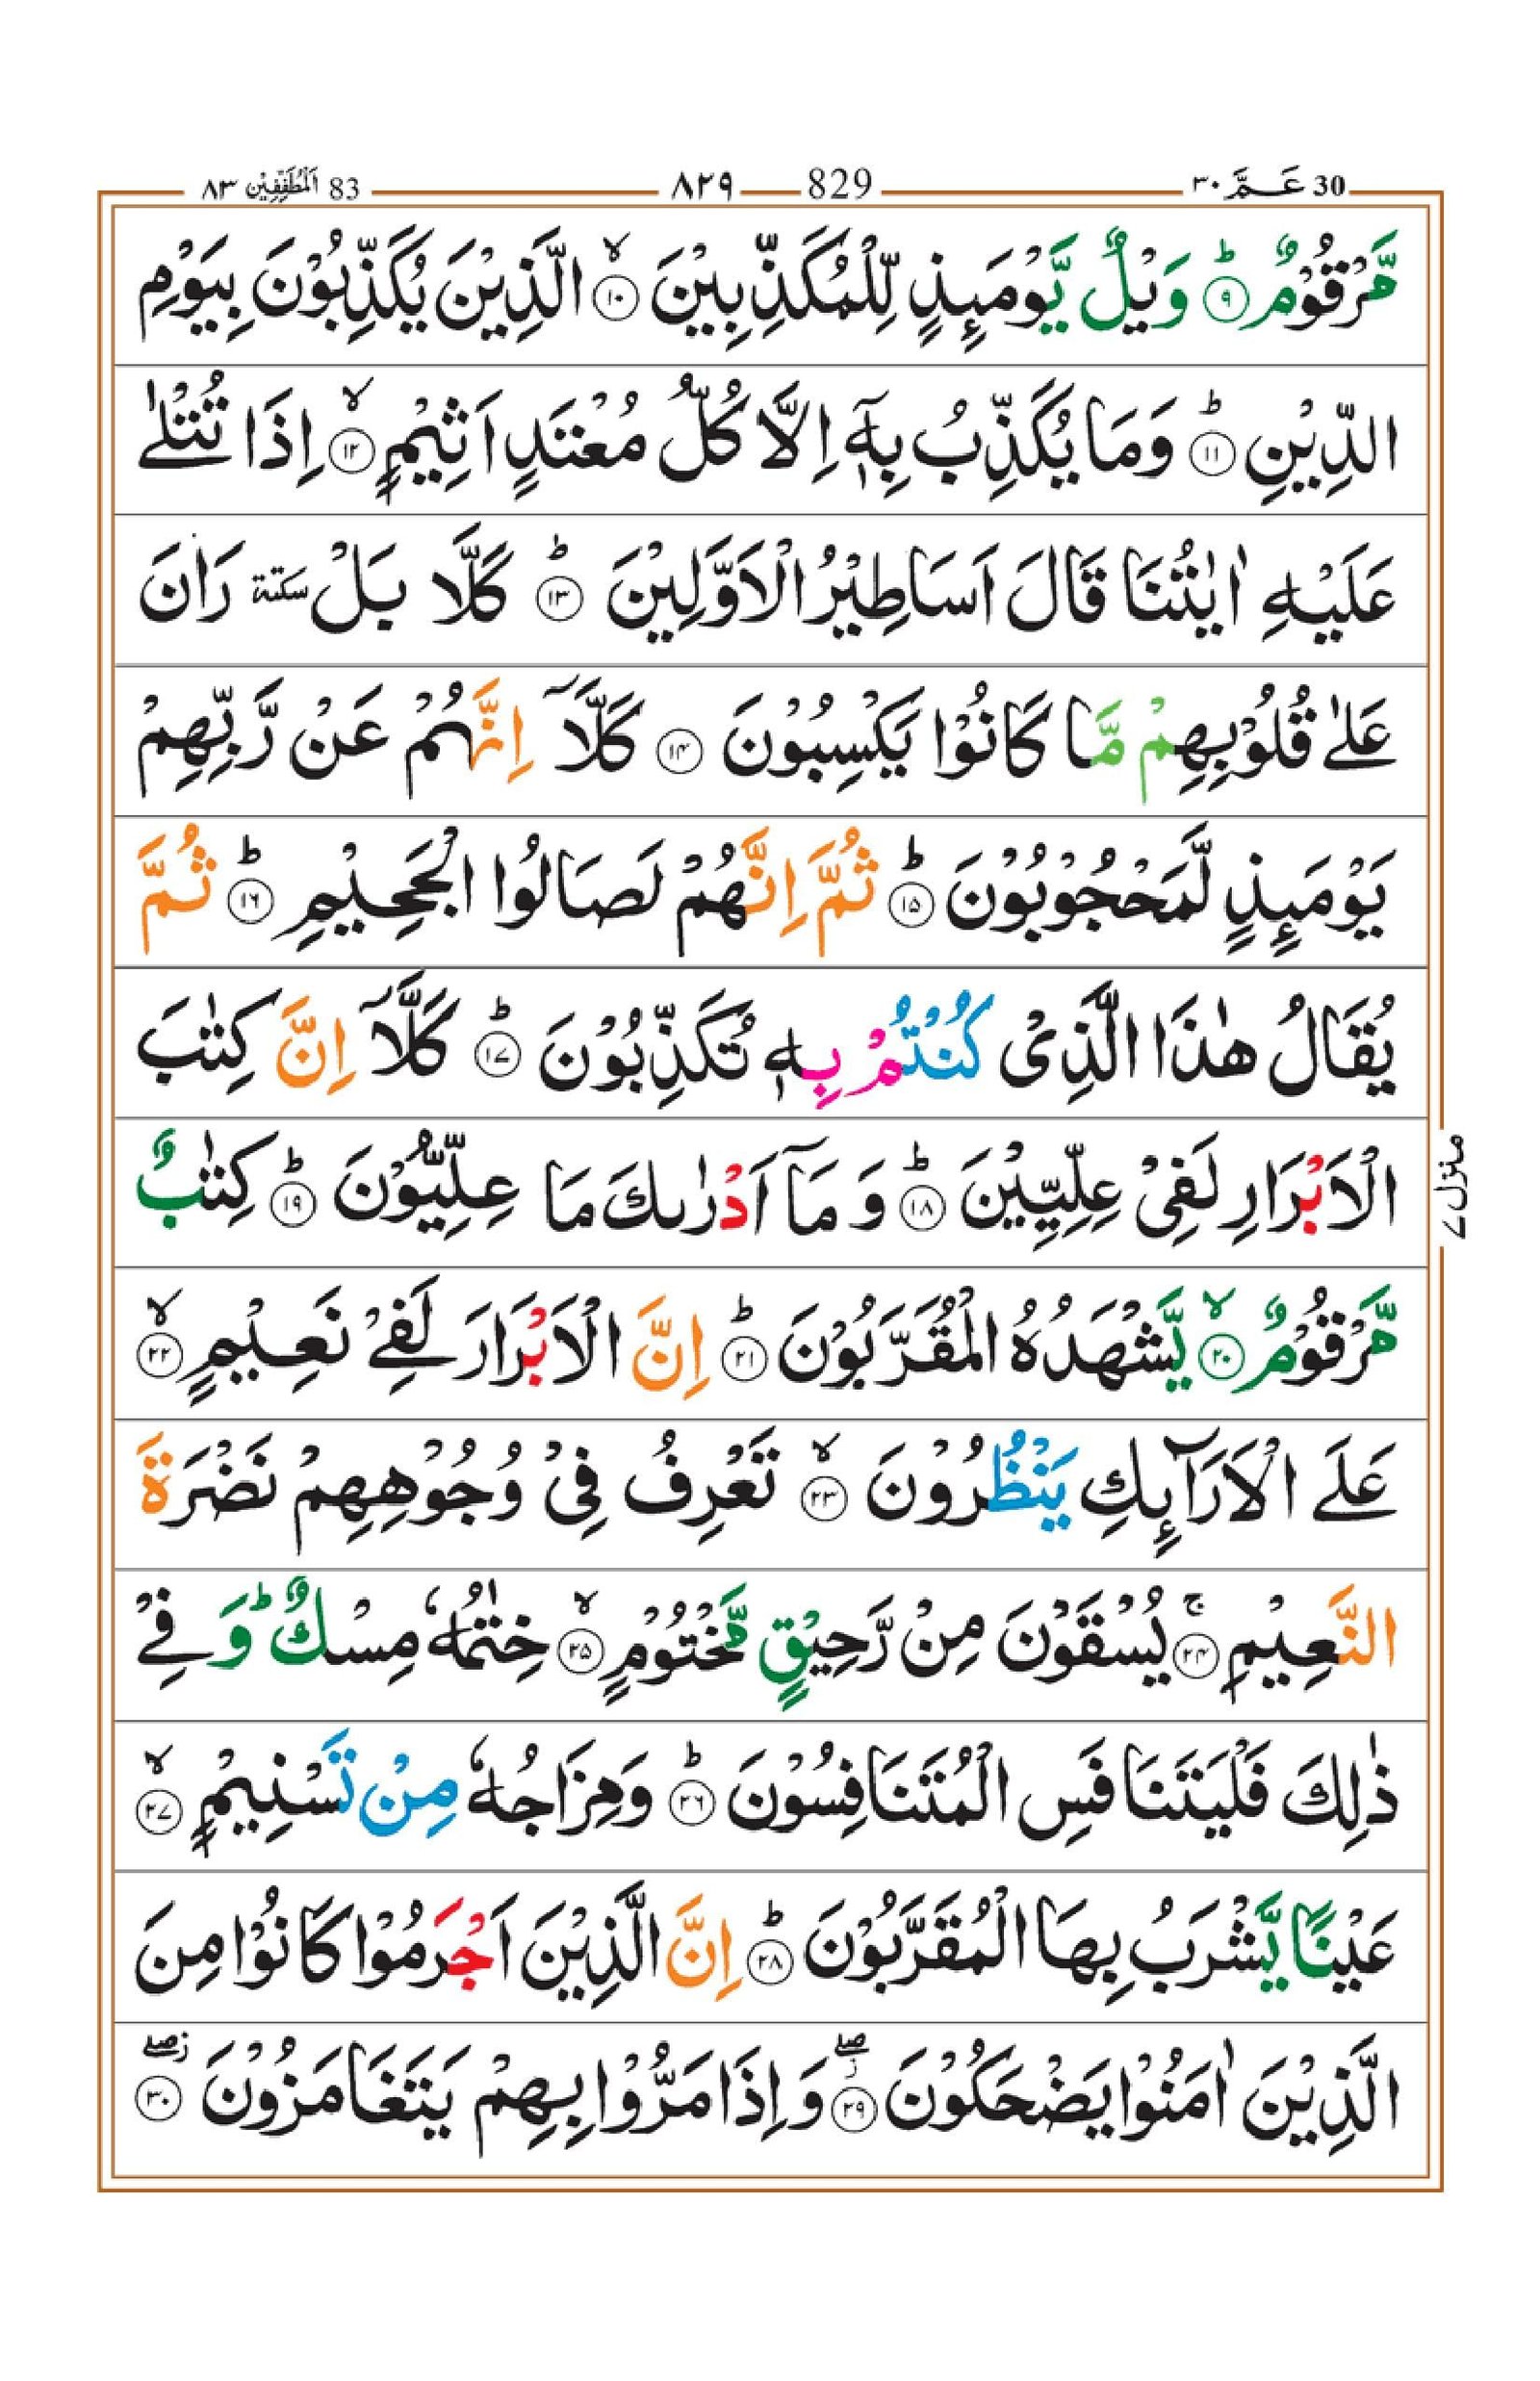 30 عَمَّ ٣٠ 829 ٨٢٩ 83 اَلْمُطَفِّفِيْن ٨٣
مَّرْقُوْمٌ ؕ﴿۹﴾ وَيْلٌ يَّوْمَىِٕذٍ لِّلْمُكَذِّبِيْنَ ۙ﴿۱۰﴾ الَّذِيْنَ يُكَذِّبُوْنَ بِيَوْمِ
الدِّيْنِ ؕ﴿۱۱﴾ وَمَا يُكَذِّبُ بِهٖۤ اِلَّا كُلُّ مُعْتَدٍ اَثِيْمٍ ۙ﴿۱۲﴾ اِذَا تُتْلٰى
عَلَيْهِ اٰيٰتُنَا قَالَ اَسَاطِيْرُ الْاَوَّلِيْنَ ؕ﴿۱۳﴾ كَلَّا بَلْ سكتة رَانَ
عَلٰى قُلُوْبِهِمْ مَّا كَانُوْا يَكْسِبُوْنَ ﴿۱۴﴾ كَلَّاۤ اِنَّهُمْ عَنْ رَّبِّهِمْ
يَوْمَىِٕذٍ لَّمَحْجُوْبُوْنَ ؕ﴿۱۵﴾ ثُمَّ اِنَّهُمْ لَصَالُوا الْجَحِيْمِ ؕ﴿۱۶﴾ ثُمَّ
يُقَالُ هٰذَا الَّذِىْ كُنْتُمْ بِهٖ تُكَذِّبُوْنَ ؕ﴿۱۷﴾ كَلَّاۤ اِنَّ كِتٰبَ
الْاَبْرَارِ لَفِىْ عِلِّيِّيْنَ ؕ﴿۱۸﴾ وَمَاۤ اَدْرٰىكَ مَا عِلِّيُّوْنَ ؕ﴿۱۹﴾ كِتٰبٌ
مَّرْقُوْمٌ ۙ﴿۲۰﴾ يَّشْهَدُهُ الْمُقَرَّبُوْنَ ؕ﴿۲۱﴾ اِنَّ الْاَبْرَارَ لَفِىْ نَعِيْمٍ ۙ﴿۲۲﴾
عَلَى الْاَرَآىِٕكِ يَنْظُرُوْنَ ۙ﴿۲۳﴾ تَعْرِفُ فِىْ وُجُوْهِهِمْ نَضْرَةَ
النَّعِيْمِ ۚ﴿۲۴﴾ يُسْقَوْنَ مِنْ رَّحِيْقٍ مَّخْتُوْمٍ ۙ﴿۲۵﴾ خِتٰمُهٗ مِسْكٌ ؕ وَفِىْ
ذٰلِكَ فَلْيَتَنَافَسِ الْمُتَنَافِسُوْنَ ؕ﴿۲۶﴾ وَمِزَاجُهٗ مِنْ تَسْنِيْمٍ ۙ﴿۲۷﴾
عَيْنًا يَّشْرَبُ بِهَا الْمُقَرَّبُوْنَ ؕ﴿۲۸﴾ اِنَّ الَّذِيْنَ اَجْرَمُوْا كَانُوْا مِنَ
الَّذِيْنَ اٰمَنُوْا يَضْحَكُوْنَ ۖ ز﴿۲۹﴾ وَاِذَا مَرُّوْا بِهِمْ يَتَغَامَزُوْنَ ۖ ز﴿۳۰﴾
منزل ۷